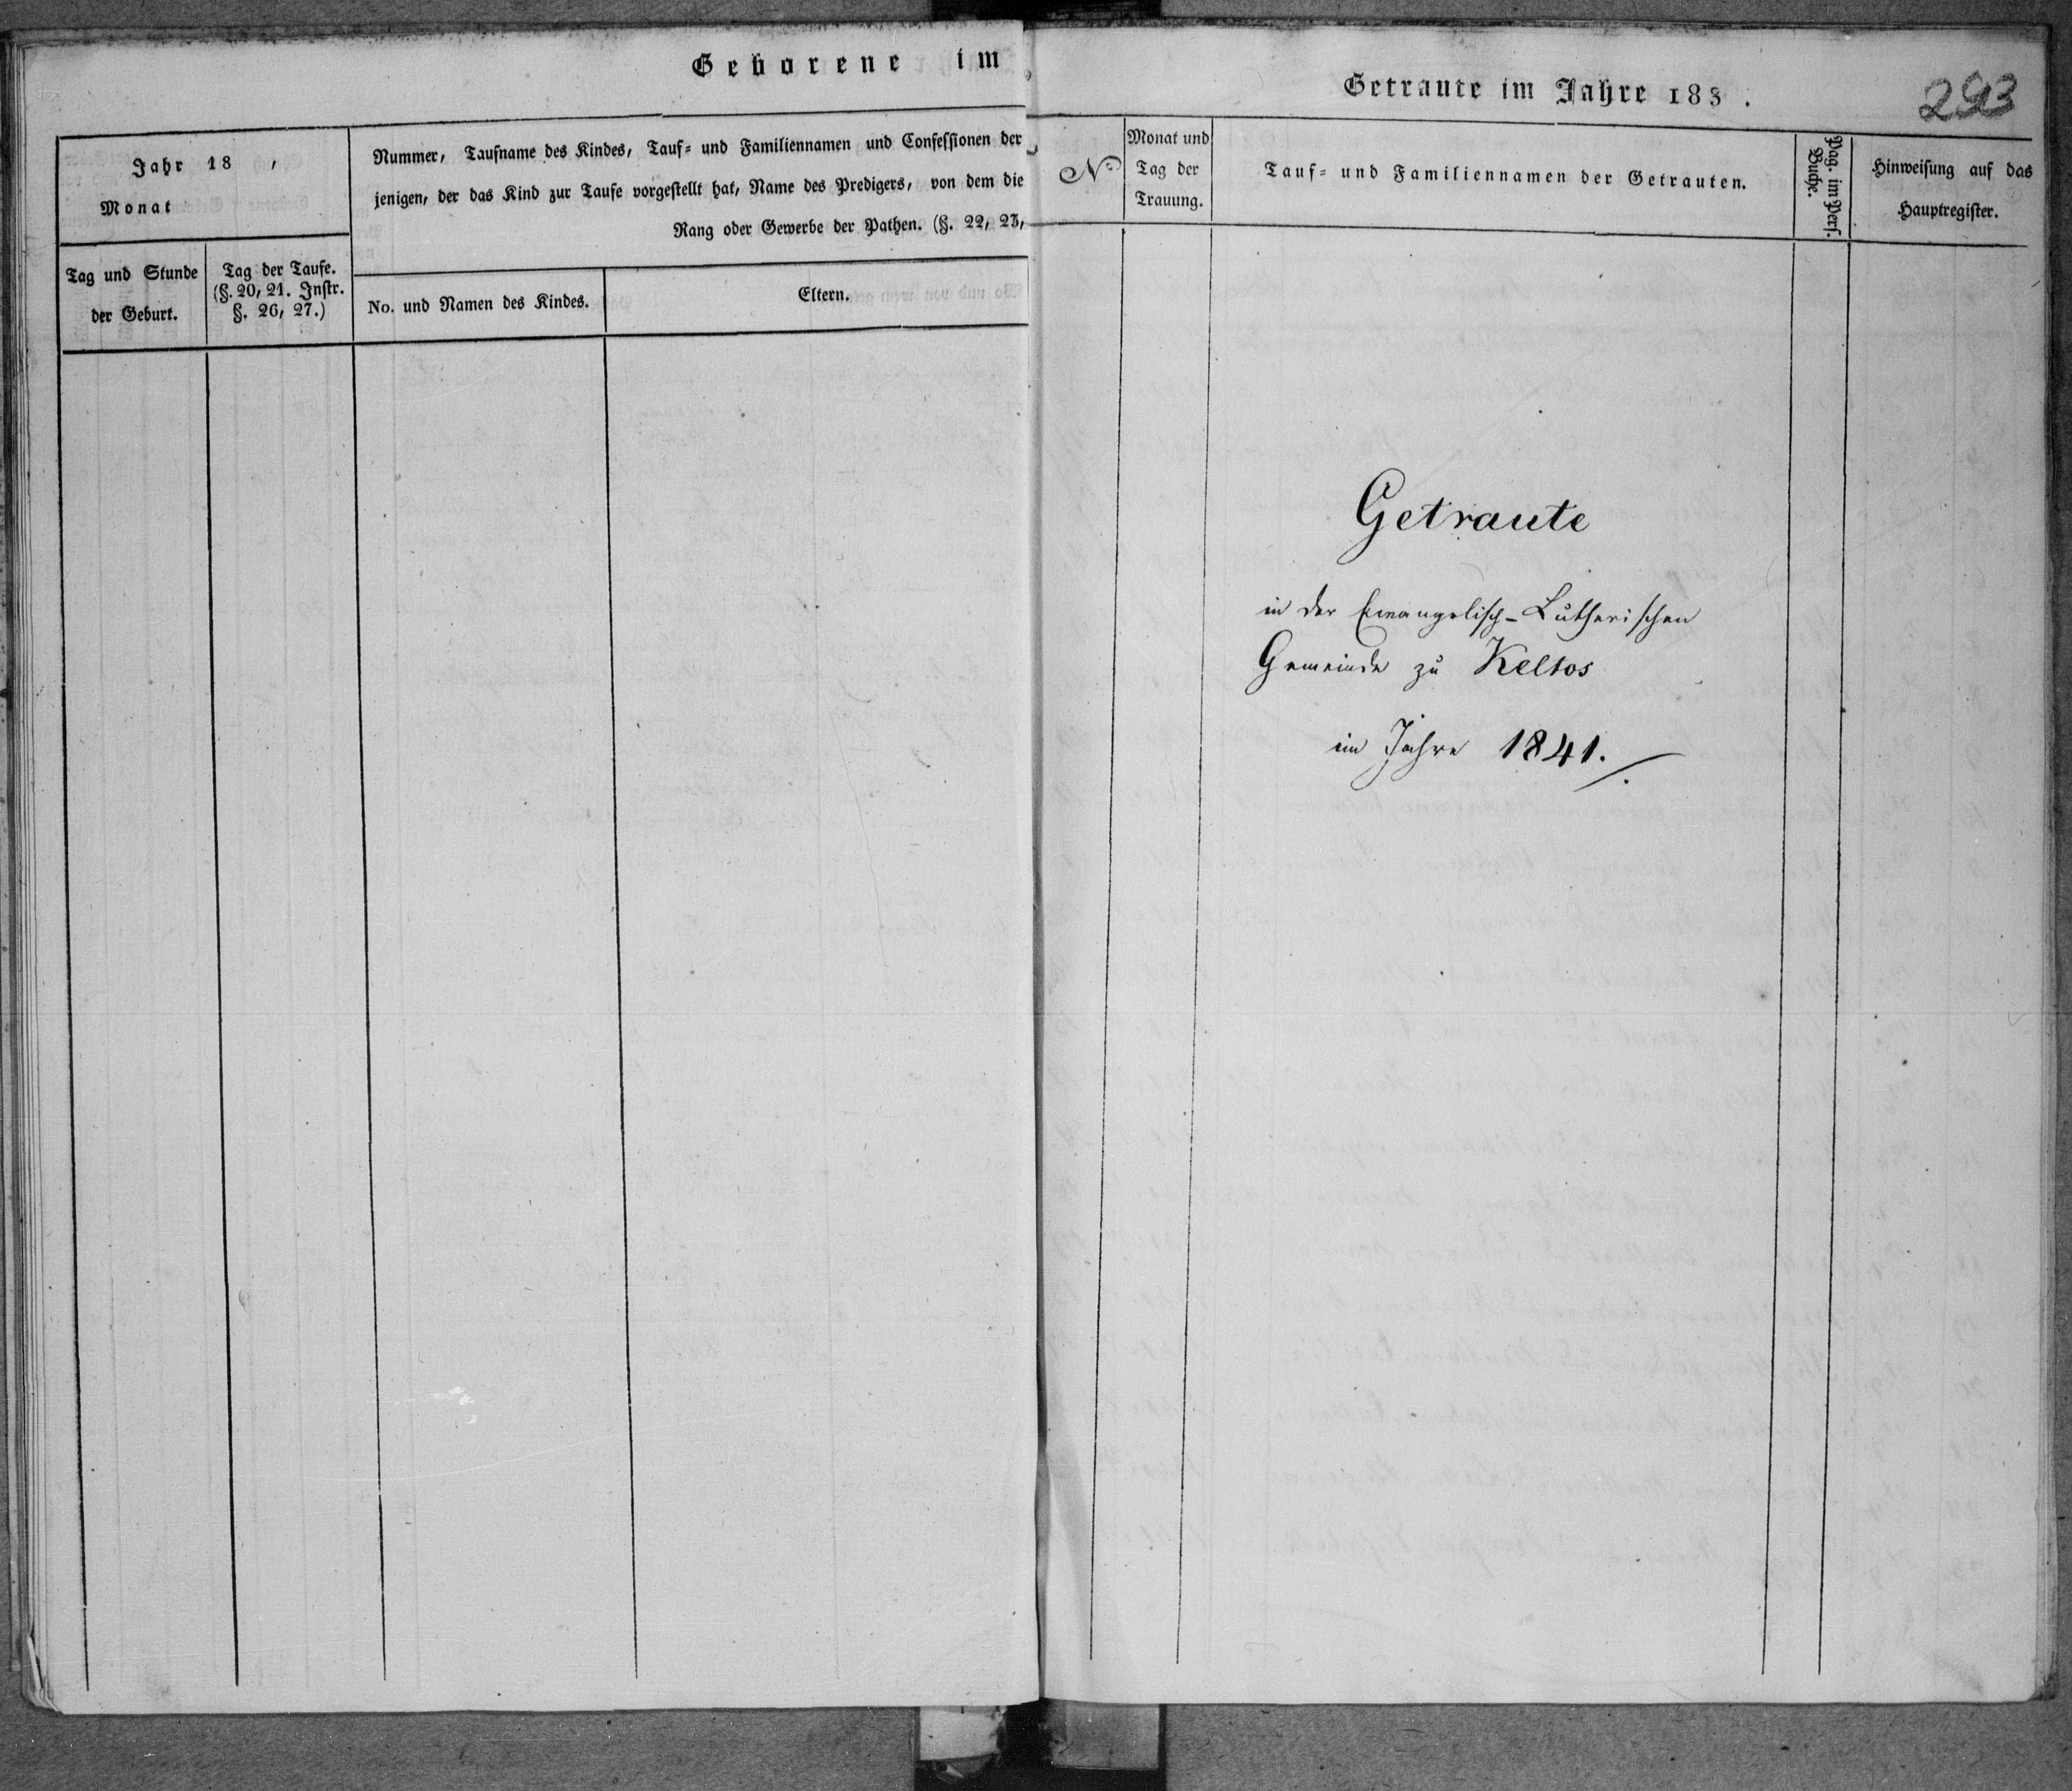 Geborene im
Jahr 18 ,
Monat
Nummer, Taufname des Kindes, Tauf- und Familiennamen und Confessionen der
jenigen, der das Kind zur Taufe vorgestellt hat, Name des Predigers, von dem die
Rang oder Gewerbe der Pathen. (§. 22, 23,
Tag und Stunde
der Geburt.
Tag der Taufe.
(§. 20, 21. Instr.
§. 26, 27.)
No. und Namen des Kindes.
Eltern.
Getraute im Jahre 183 .
293
No
Monat und
Tag der
Trauung.
Tauf- und Familiennamen der Getrauten.
Pag. im Pers.
Buche.
Hinweisung auf das
Hauptregister.
Getraute
in der Evangelisch-Lutherischen
Gemeinde zu Keltos
im Jahre 1841.